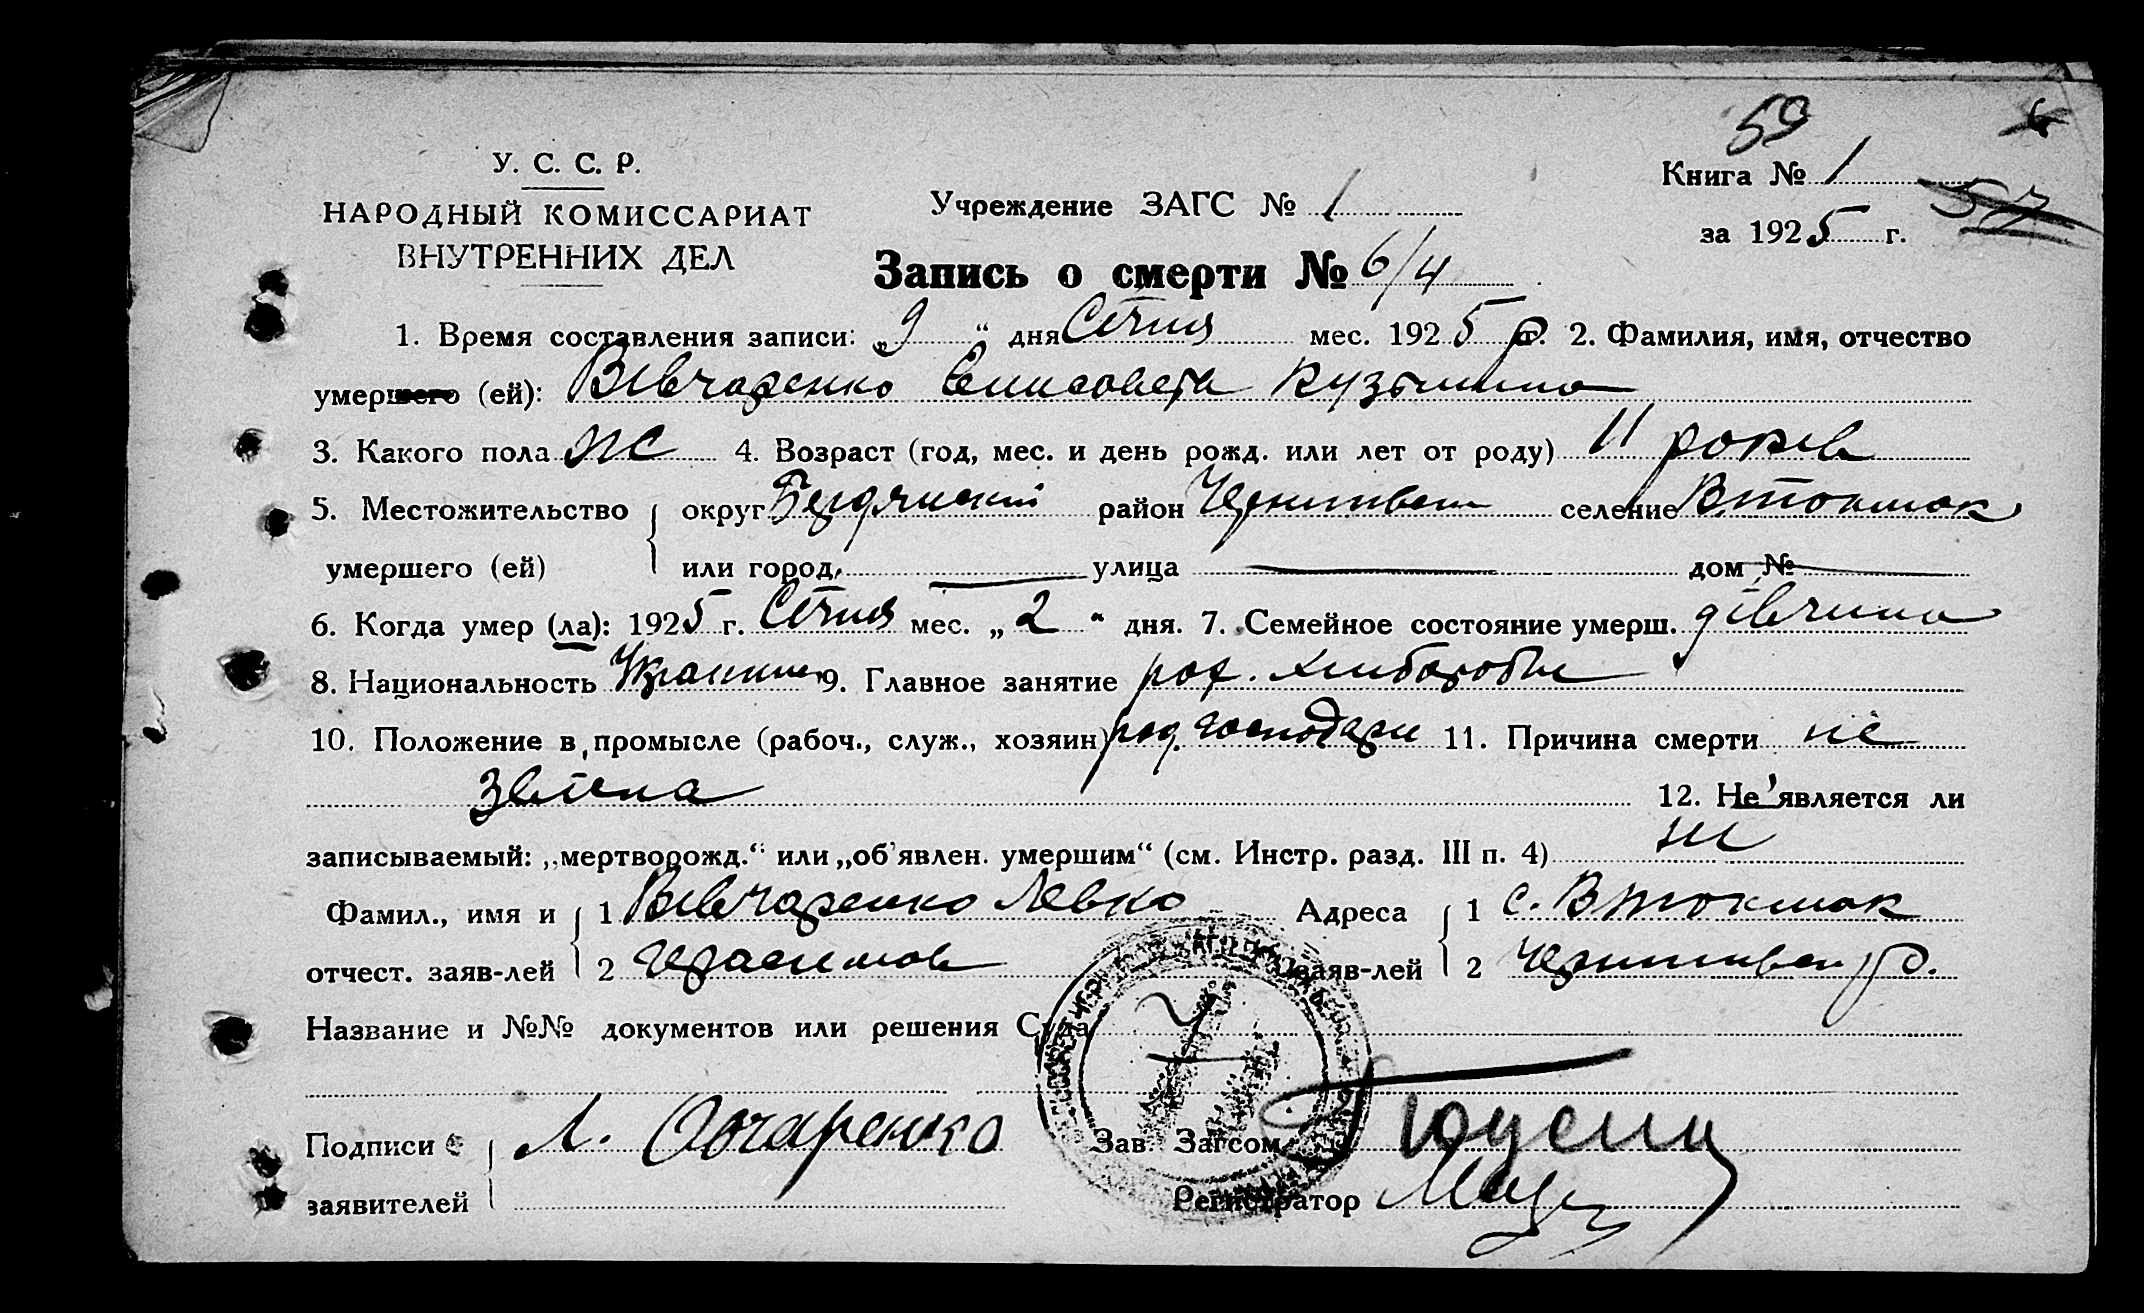 59
У. С. С. Р.
НАРОДНЫЙ КОМИССАРИАТ
ВНУТРЕННИХ ДЕЛ
Учреждение ЗАГС № 1
Книга № 1
57
за 1925 г.
Запись о смерти № 6/4
1. Время составления записи: „9“ дня Січня мес. 1925 р. 2. Фамилия, имя, отчество
умершего (ей): Вівчаренко Єлисовета Кузьмина
3. Какого пола ж 4. Возраст (год, мес. и день рожд. или лет от роду) 11 років
5. Местожительство умершего (ей) округ Бердянский район селение В. Токмак
или город улица дом №
6. Когда умер (ла): 1925 г. Січня мес. „2“ дня. 7. Семейное состояние умерш. дівчина
8. Национальность 9. Главное занятие
10. Положение в промысле (рабоч., служ., хозяин) род. господари 11. Причина смерти не
звісна
12. Не является ли
записываемый: „мертворожд.“ или „об'явлен. умершим“ (см. Инстр. разд. III п. 4) ні
Фамил., имя и 1 Вівчаренко Левко Адреса 1 с. В Токмак
отчест. заяв-лей 2 заяв-лей 2 р.
Название и №№ документов или решения Суда
Подписи Л. Овчаренко Зав. Загсом
заявителей Регистратор